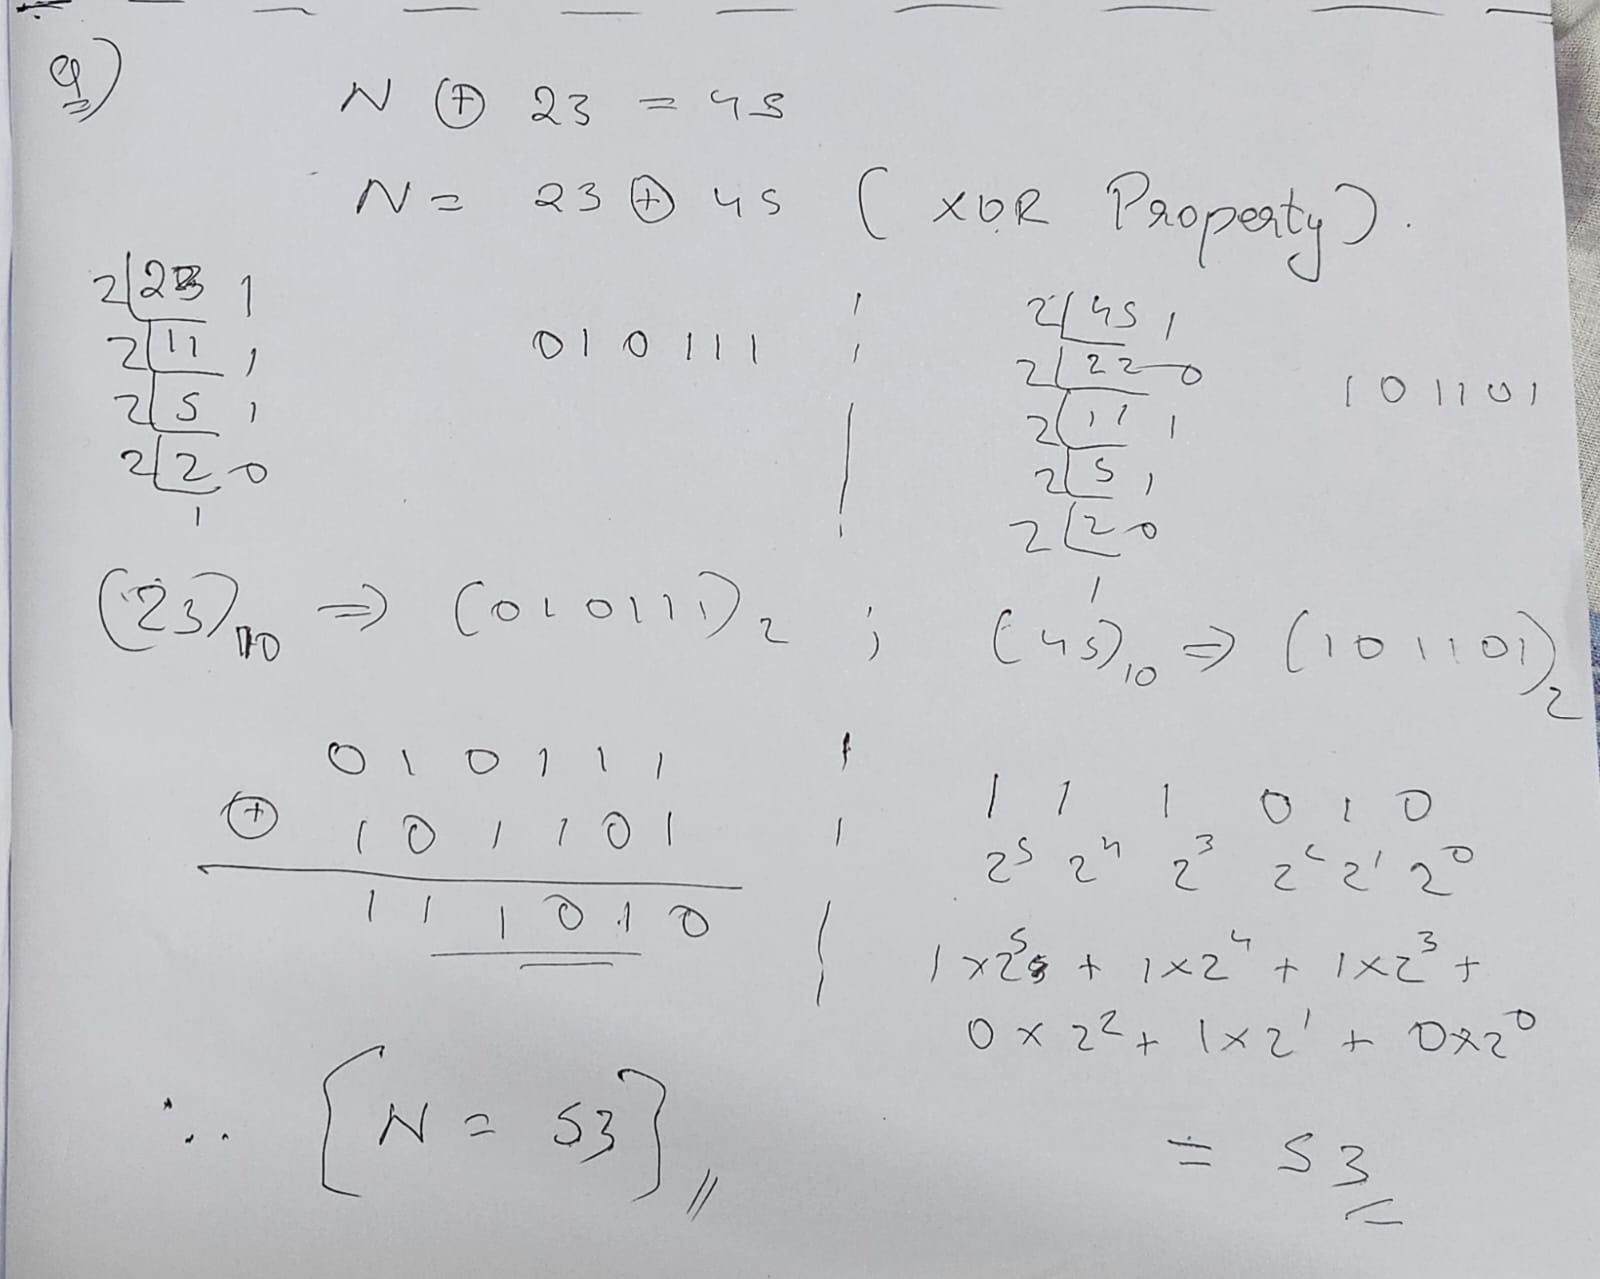 9)
N ⊕ 23 = 45
N = 23 ⊕ 45 ( XOR Property ) .
2 | 23 1
2 | 11 1
2 | 5 1
2 | 2 0
1
0 1 0 1 1 1
2 | 45 1
2 | 22 0
2 | 11 1
2 | 5 1
2 | 2 0
1
1 0 1 1 0 1
(23)₁₀ ⇒ (0 1 0 1 1 1)₂ ; (45)₁₀ ⇒ (1 0 1 1 0 1)₂
0 1 0 1 1 1
⊕ 1 0 1 1 0 1
1 1 1 0 1 0
1 1 1 0 1 0
2⁵ 2⁴ 2³ 2² 2¹ 2⁰
1×2⁵ + 1×2⁴ + 1×2³ +
0×2² + 1×2¹ + 0×2⁰
= 53
∴ [N = 53]